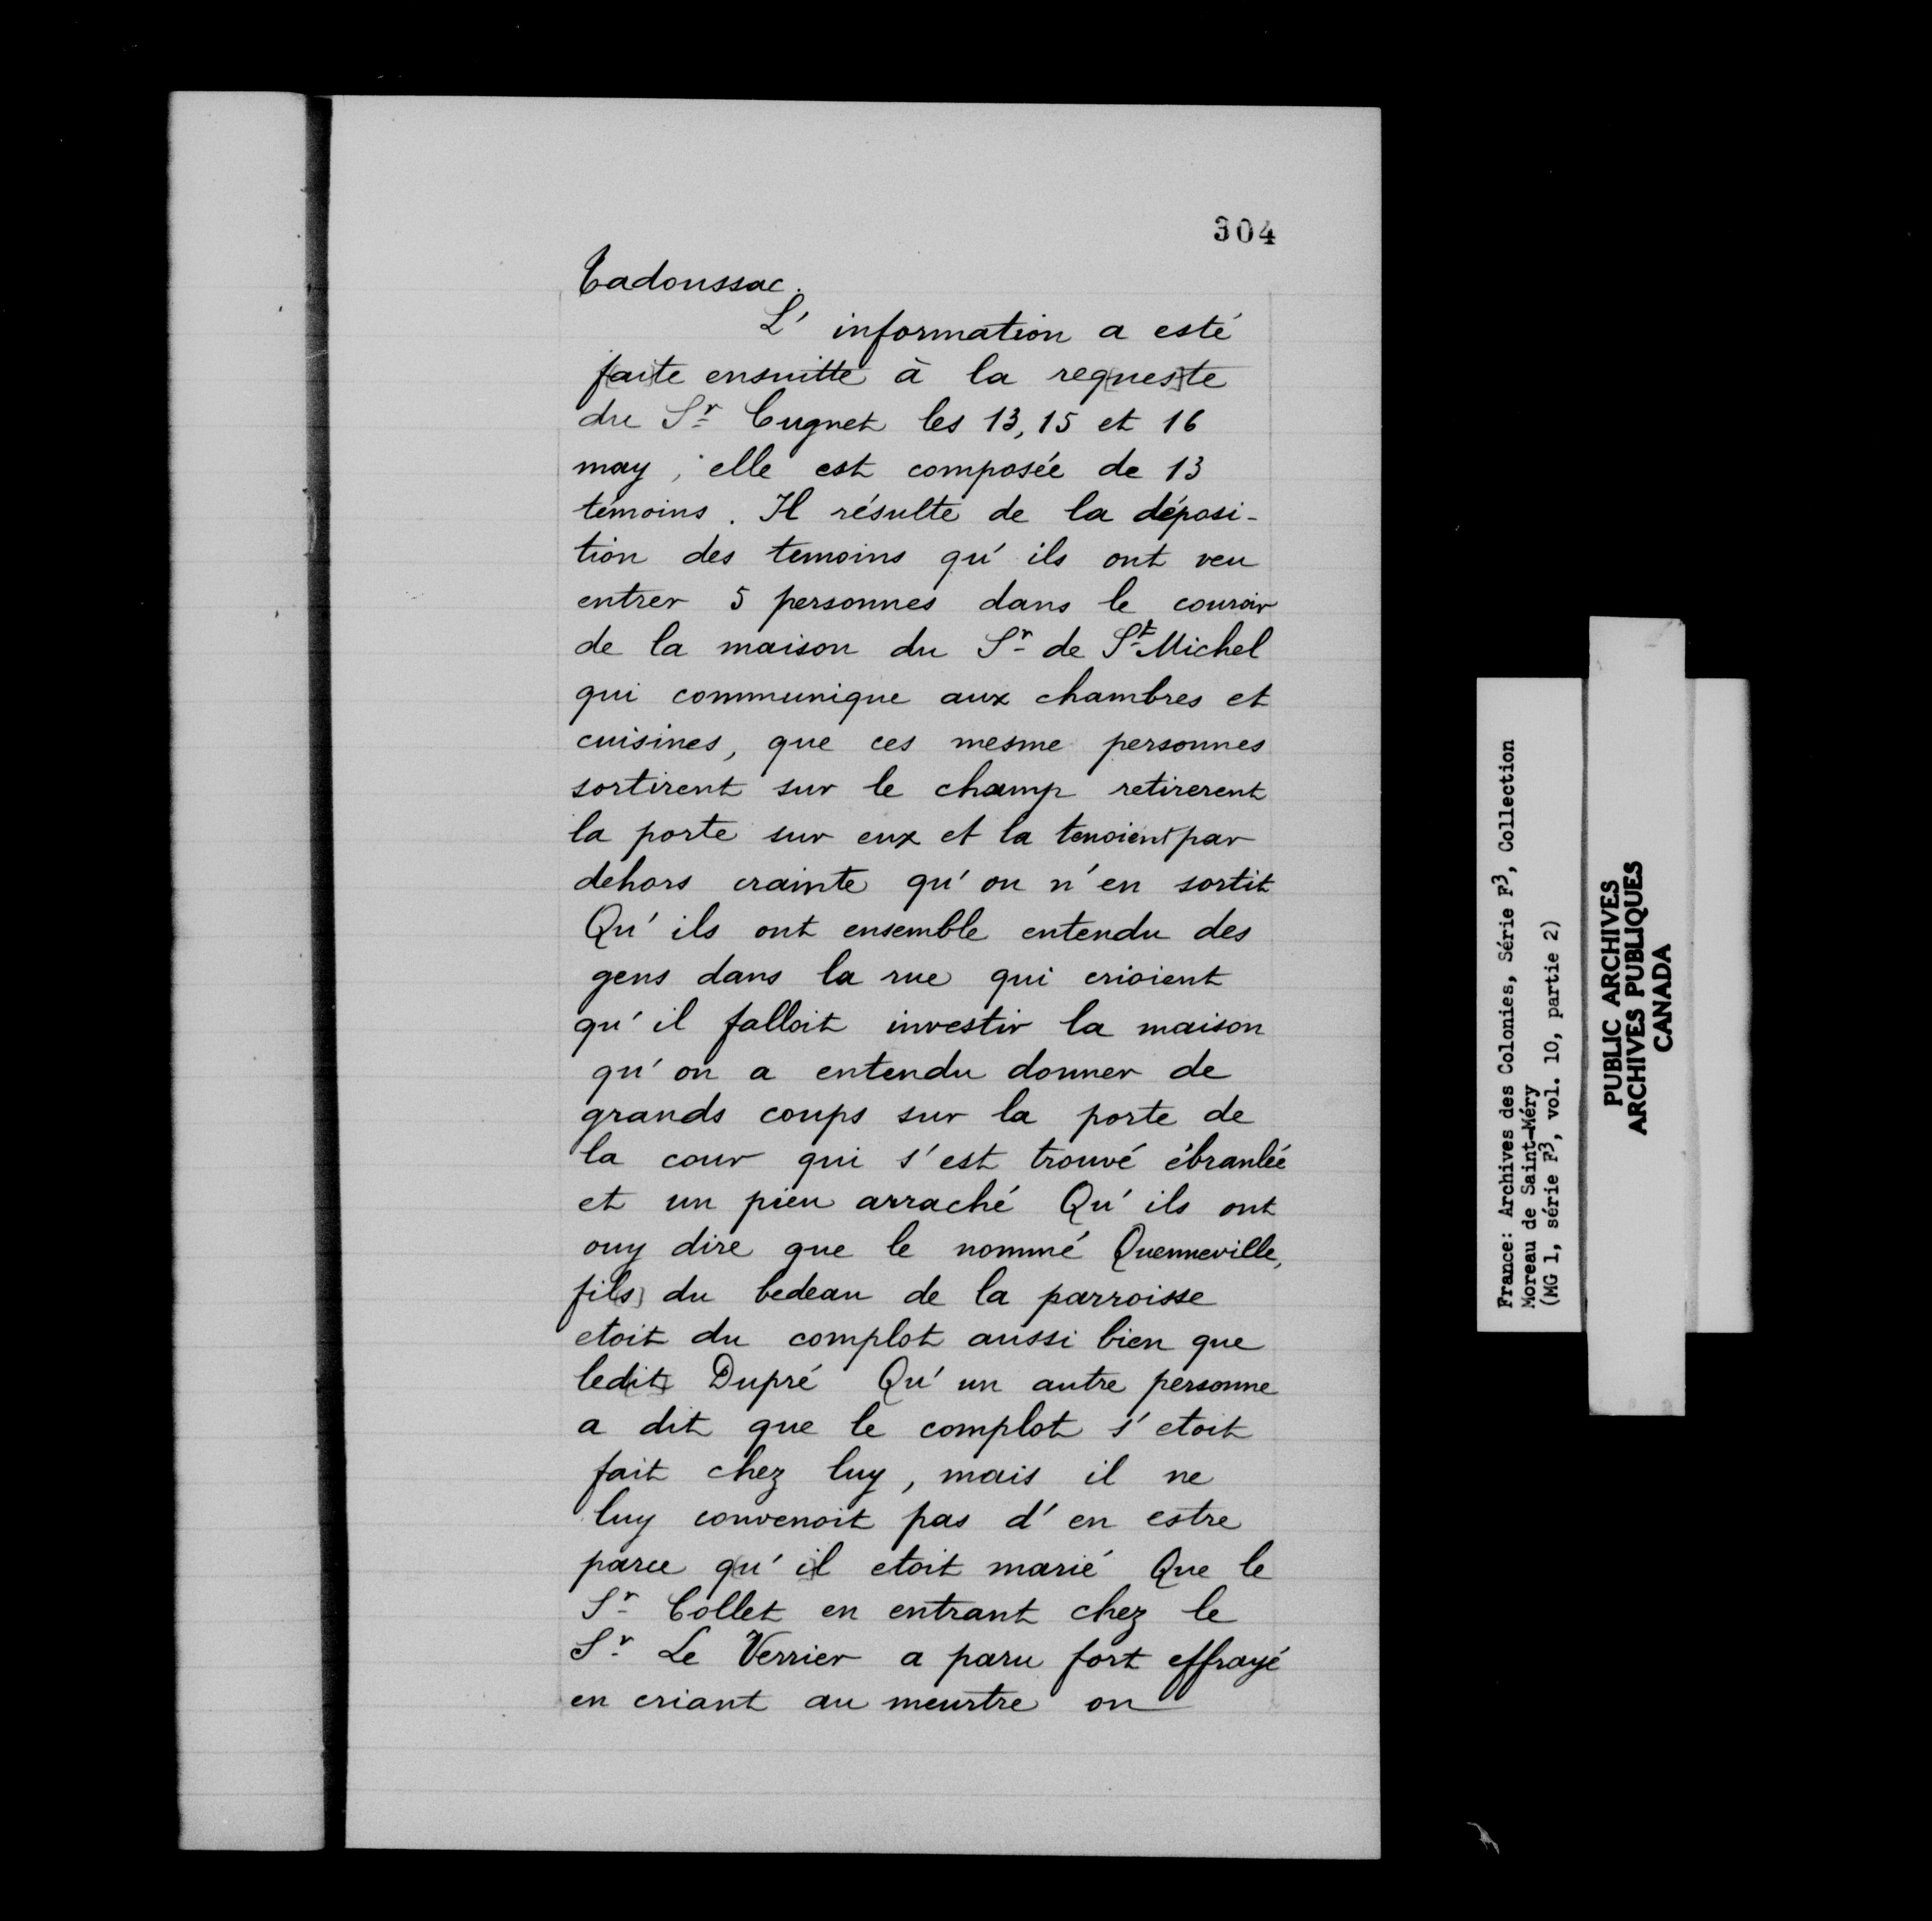 304
Tadoussac.
L' information a esté
faite ensuitte à la requeste
du Sr Cugnet les 13, 15 et 16
may, elle est composée de 13
témoins. Il résulte de la déposi-
tion des temoins qu' ils ont veu
entrer 5 personnes dans le couroir
de la maison du Sr de St Michel
qui communique aux chambres et
cuisines, que ces mesme personnes
sortirent sur le champ retirerent
la porte sur eux et la tenoient par
dehors crainte qu' on n' en sortit
Qu' ils ont ensemble entendu des
gens dans la rue qui crioient
qu' il falloit investir la maison
qu' on a entendu donner de
grands coups sur la porte de
la cour qui s' est trouvé ébranlée
et un pieu arraché Qu' ils ont
ouy dire que le nommé Quenneville,
fils du bedeau de la parroisse
etoit du complot aussi bien que
ledit Dupré Qu' un autre personne
a dit que le complot s' etoit
fait chez luy, mais il ne
luy convenoit pas d' en estre
parce qu' il etoit marié Que le
Sr Collet en entrant chez le
Sr Le Verrier a paru fort effrayé
en criant au meurtre on
France: Archives des Colonies, Série F3, Collection
Moreau de Saint-Méry
(MG 1, série F3, vol. 10, partie 2)
PUBLIC ARCHIVES
ARCHIVES PUBLIQUES
CANADA